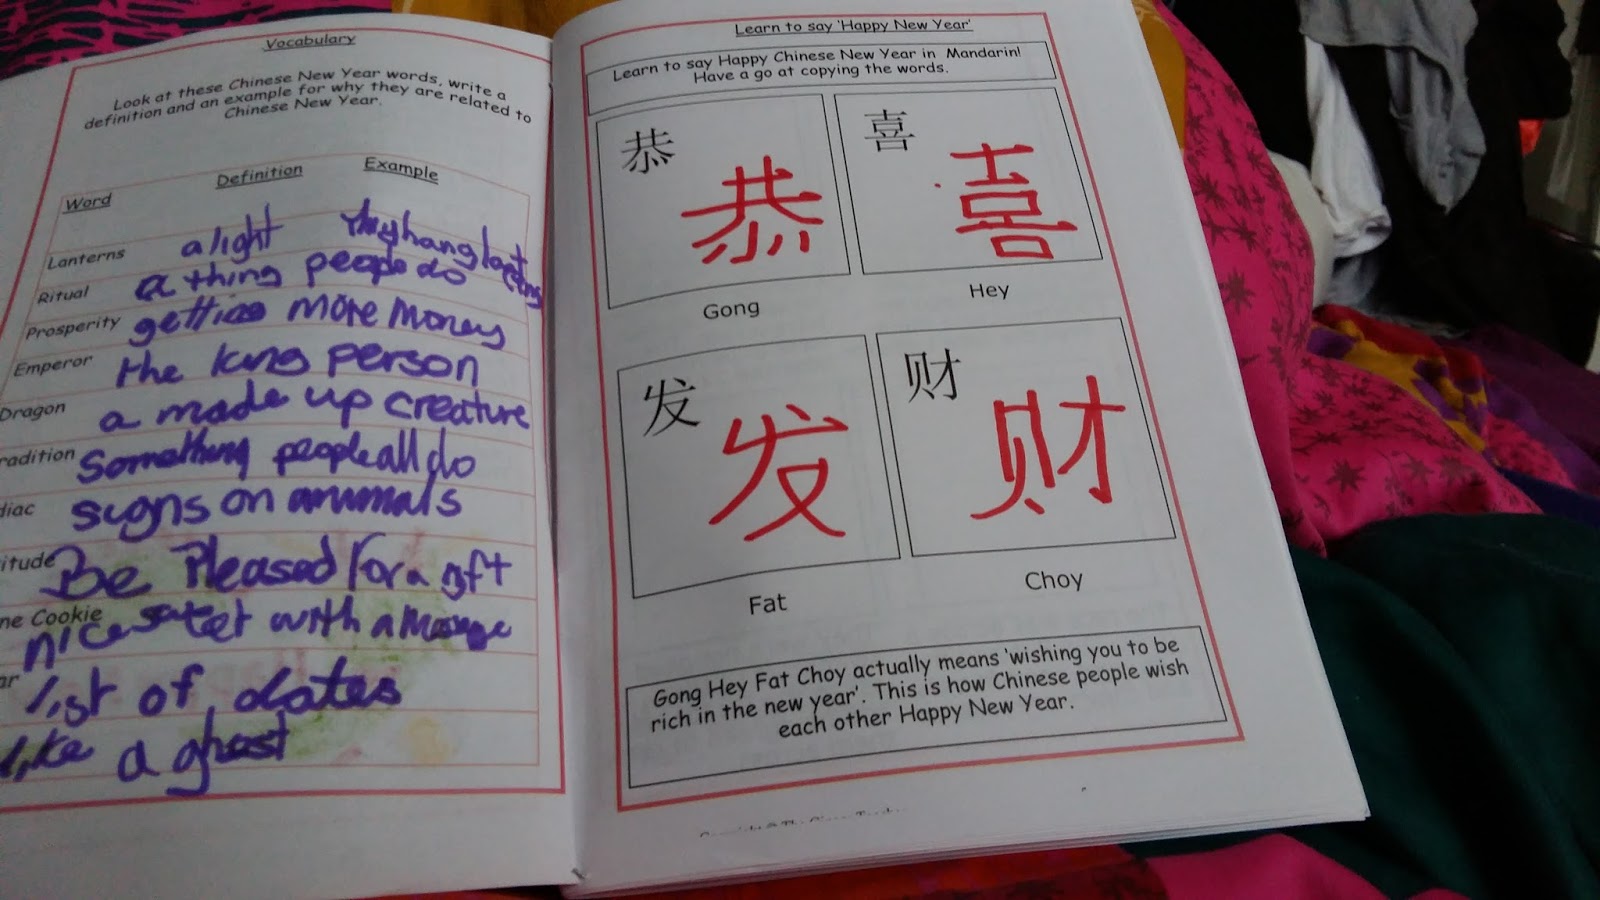 Vocabulary
Look at these Chinese New Year words, write a
definition and an example for why they are related to
Chinese New Year.
Word Definition Example
Lanterns a light they hang
Ritual a thing people do
Prosperity getting more money
Emperor the king person
Dragon a made up creature
radition something people all do
diac signs on animals
itude Be Pleased for a gift
ne Cookie nice with a
ar list of dates
like a ghost
Learn to say 'Happy New Year'
Learn to say Happy Chinese New Year in Mandarin!
Have a go at copying the words.
恭 恭
喜 喜
Gong
Hey
发 发
财 财
Fat
Choy
Gong Hey Fat Choy actually means 'wishing you to be
rich in the new year'. This is how Chinese people wish
each other Happy New Year.